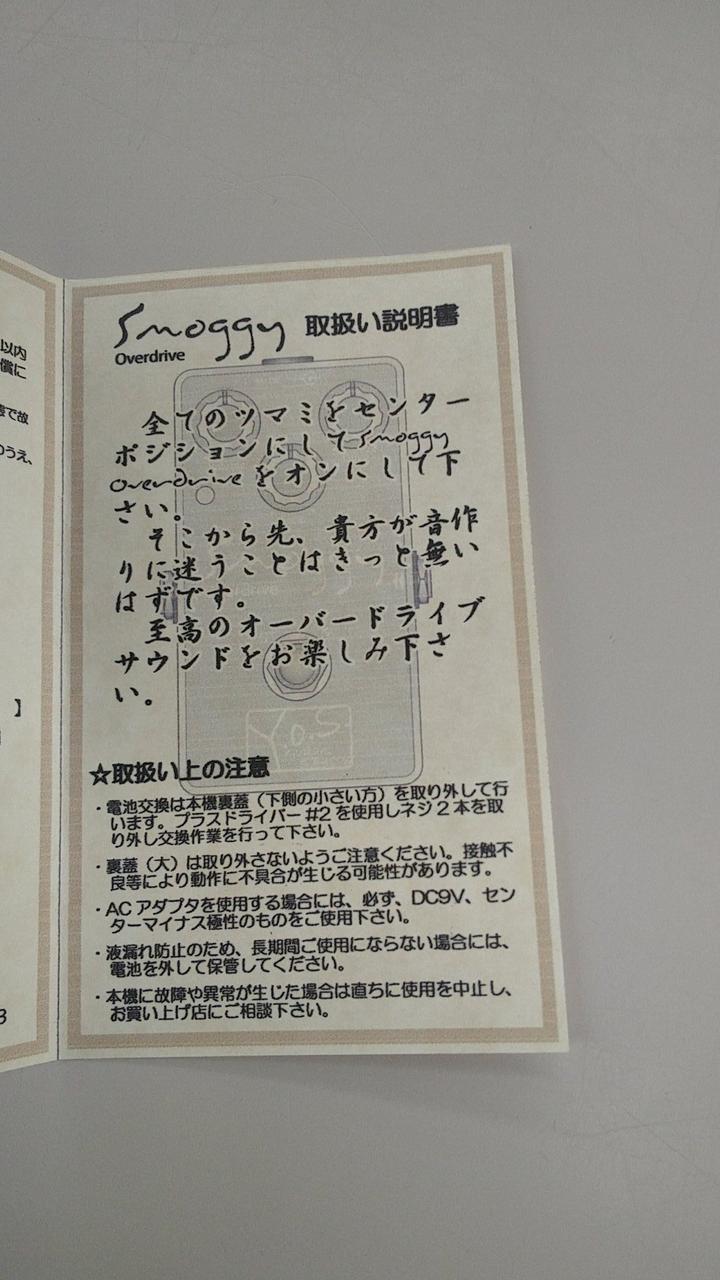 以内
償に
態で故
のうえ、
】
3
Smoggy 取扱い説明書
Overdrive
全てのツマミをセンター
ポジションにしてSmoggy
Overdriveをオンにして下
さい。
そこから先、貴方が音作
りに迷うことはきっと無い
はずです。
至高のオーバードライブ
サウンドをお楽しみ下さ
い。
Y.O.S
☆取扱い上の注意
・電池交換は本機裏蓋（下側の小さい方）を取り外して行
います。プラスドライバー #2 を使用しネジ2本を取
り外し交換作業を行って下さい。
・裏蓋（大）は取り外さないようご注意ください。接触不
良等により動作に不具合が生じる可能性があります。
・AC アダプタを使用する場合には、必ず、DC9V、セン
ターマイナス極性のものをご使用下さい。
・液漏れ防止のため、長期間ご使用にならない場合には、
電池を外して保管してください。
・本機に故障や異常が生じた場合は直ちに使用を中止し、
お買い上げ店にご相談下さい。